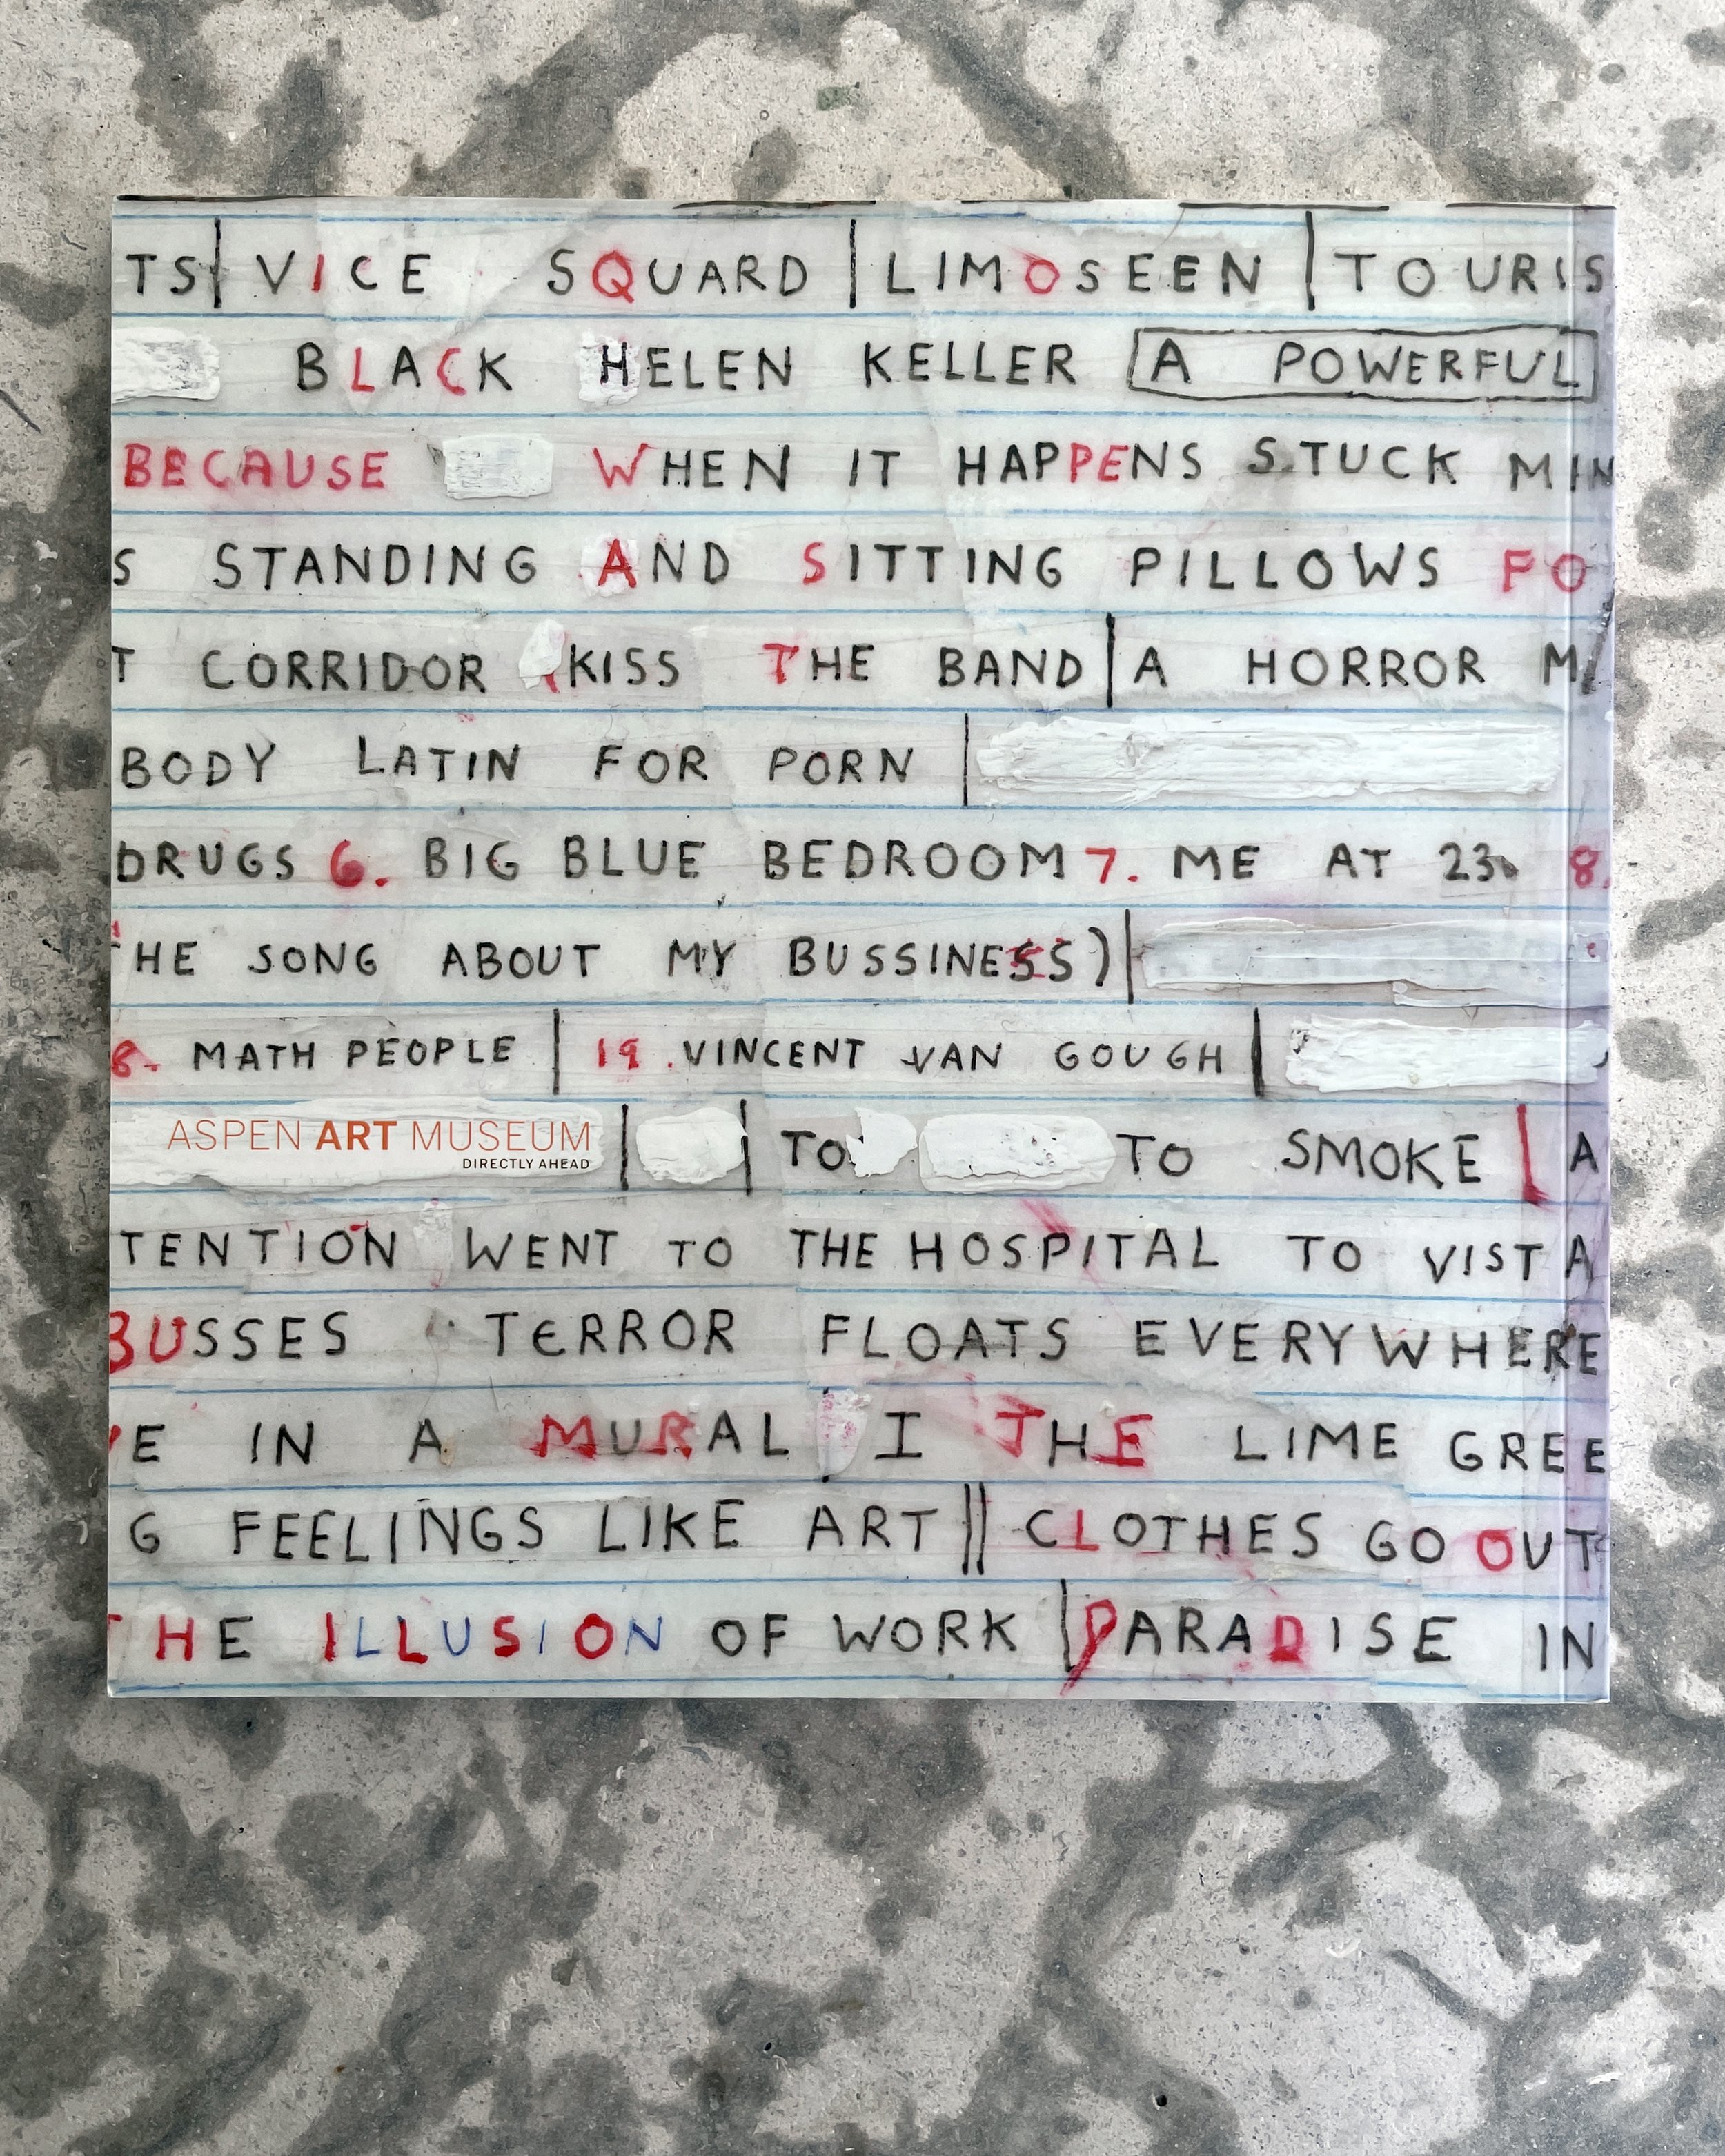 TS| VICE SQUARD | LIMOSEEN | TOURIS
BLACK HELEN KELLER A POWERFUL
BECAUSE WHEN IT HAPPENS STUCK MIN
S STANDING AND SITTING PILLOWS FO
T CORRIDOR KISS THE BAND | A HORROR M
BODY LATIN FOR PORN |
DRUGS 6. BIG BLUE BEDROOM 7. ME AT 23. 8.
THE SONG ABOUT MY BUSSINESS) |
8. MATH PEOPLE | 19. VINCENT VAN GOUGH |
ASPEN ART MUSEUM | | TO TO SMOKE | A
DIRECTLY AHEAD
TENTION WENT TO THE HOSPITAL TO VIST A
BUSSES TERROR FLOATS EVERYWHERE
E IN A MURAL | I THE LIME GREE
G FEELINGS LIKE ART || CLOTHES GO OUT
THE ILLUSION OF WORK | PARADISE IN